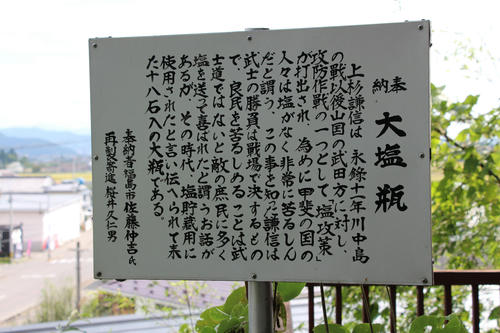 奉納 大塩瓶
上杉謙信は 永録十一年川中島
の戦以後山国の武田方に対し、
攻防作戦の一つとして〝塩攻策〟
が打出され、為めに甲斐の国の
人々は塩がなく非常に苦るしん
だと謂う、この事を知った謙信は
武士の勝負は戦場で決するもの
で、良民を苦るしめることは武
士道ではないと敵の庶民に多く
塩を送って喜ばれたと謂うお話が
あるが、その時代、塩貯蔵用に
使用されたと言い伝へられて来
た十八石入の大瓶である。
奉納者福島市佐藤仲吉氏
再製寄進 桜井久仁男